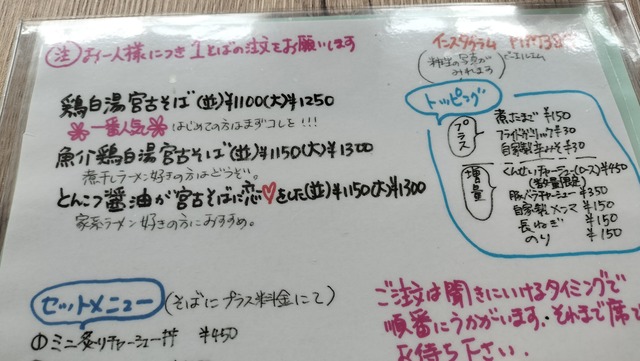 注 お一人様につき1そばの注文をお願いします
鶏白湯宮古そば(並)¥1100(大)¥1250
一番人気 はじめての方はまずコレを!!!
魚介鶏白湯宮古そば(並)¥1150(大)¥1300
煮干しラーメン好きの方はどうぞ。
とんこつ醤油が宮古そばに恋♥をした(並)¥1150(大)¥1300
家系ラーメン好きの方におすすめ。
セットメニュー (そばにプラス料金にて)
① ミニ炙りチャーシュー丼 ¥450
インスタグラム
トッピング
プラス
煮たまご ¥150
フライドガーリック ¥30
自家製辛みそ ¥30
増量
くんせいチャーシュー(ロース) ¥450
(数量限定)
豚バラチャーシュー ¥350
自家製メンマ ¥150
長ねぎ ¥150
のり ¥150
ご注文は聞きにいけるタイミングで
順番にうかがいます。それまで席で
お待ち下さい。